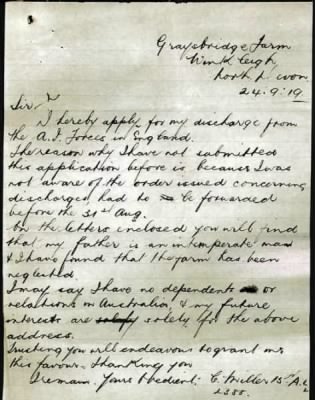 Graysbridge Farm
Winkleigh
North Devon
24.9.19
Sir,
I hereby apply for my discharge from
the A.I. Forces in England.
The reason why I have not submitted
this application before is because I was
not aware of the order issued concerning
discharges had to be forwarded
before the 31st Aug.
On the letters enclosed you will find
that my father is an intemperate man
& I have found that the farm has been
neglected.
I may say I have no dependents or
relations in Australia, & my future
interests are solely for the above
address.
Trusting you will endeavour to grant me
this favour. Thanking you
I remain. Yours Obedient: C. Miller 15th A.
2385.